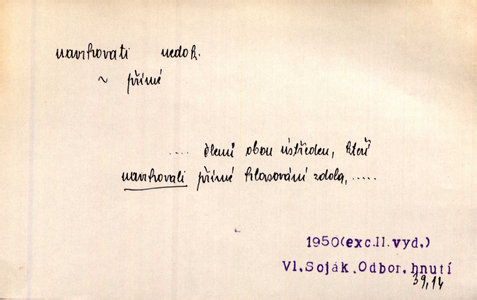 navrhovati nedok.
~ přímé
.... členů obou ústředen, kteří
navrhovali přímé hlasování zdola, .....
1950(exc.II.vyd.)
Vl.Soják.Odbor.hnutí
39,14